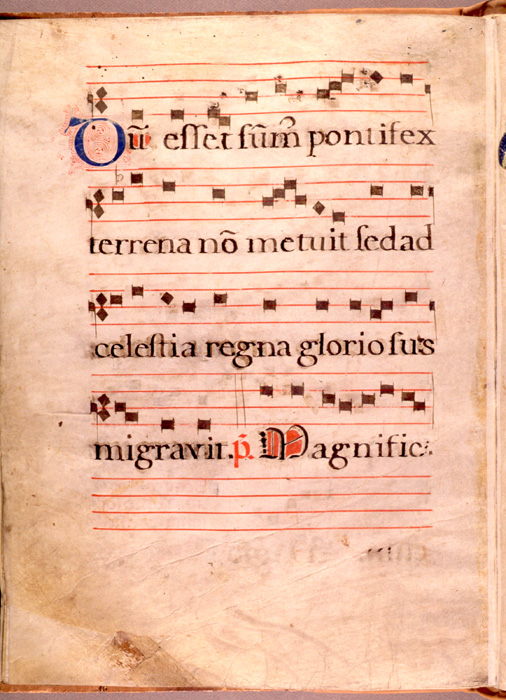 Dū esset sūm̄ pontifex
terrena nō metuit sed ad
celestia regna gloriosus
migravit. p̄. Magnific: